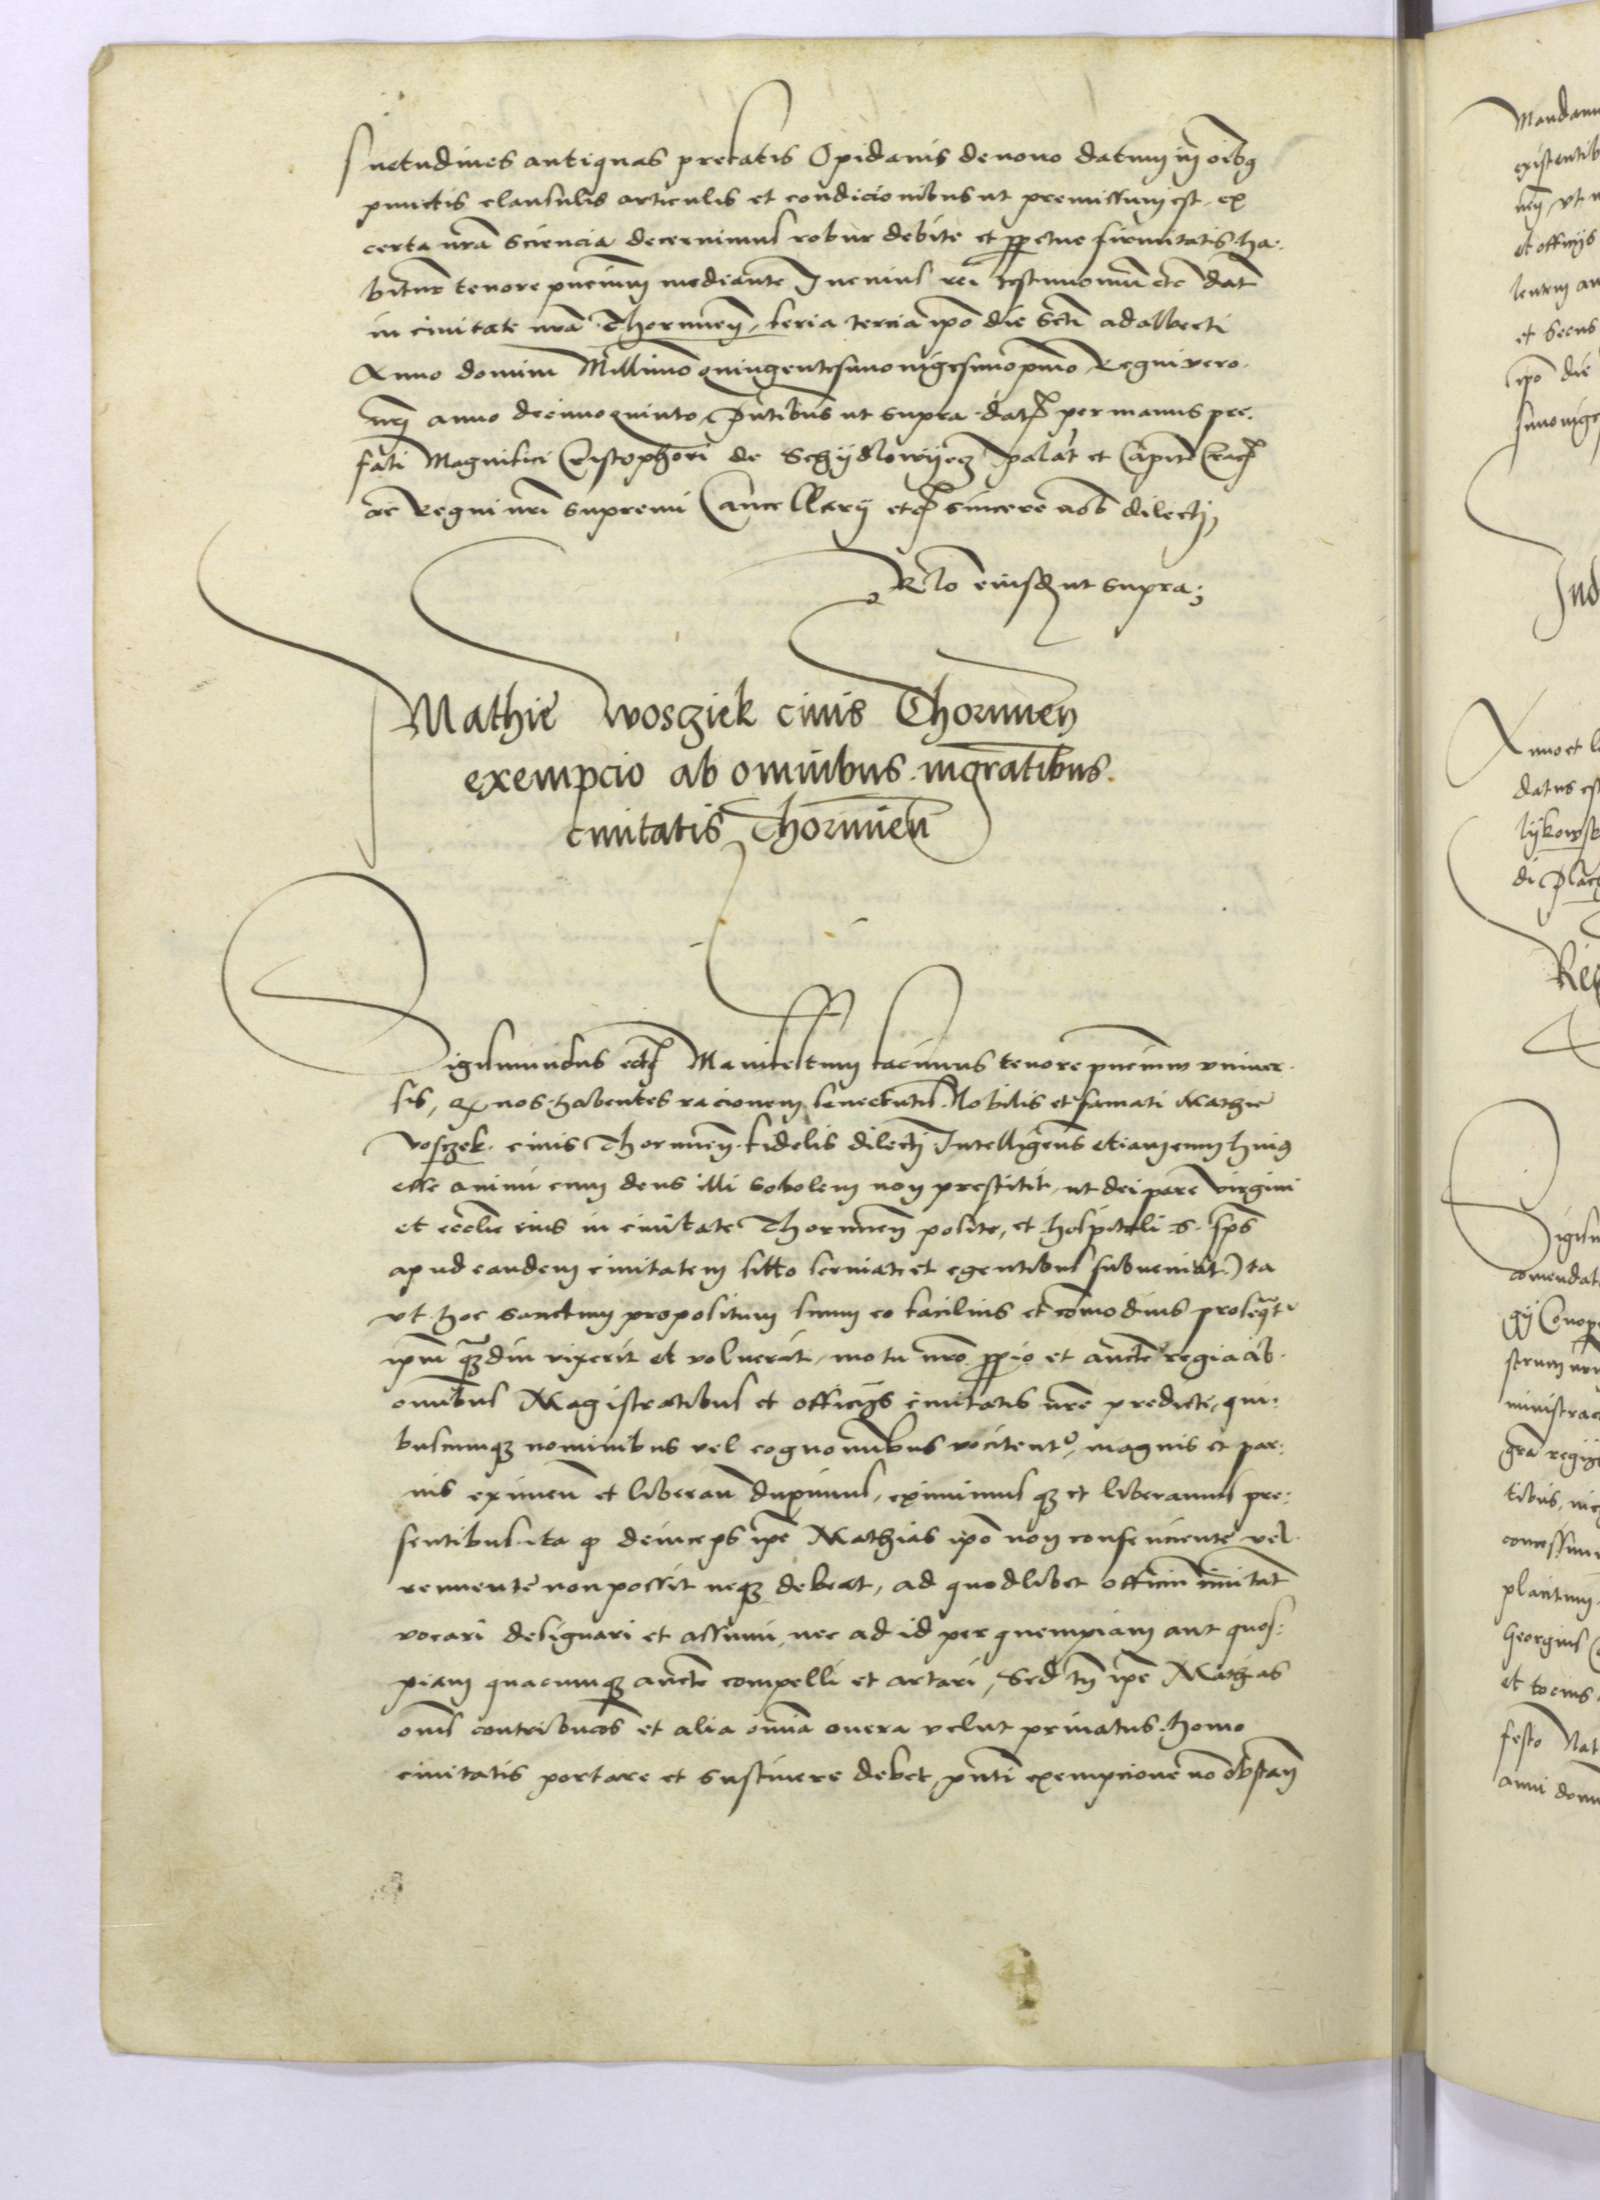 suetudines antiquas prefatis Opidanis de novo datum in oibus
punctis clausulis articulis et condicionibus ut premissum est, ex
certa nra sciencia decernimus robur debite et ppetue firmitatis ha-
bitur tenore pncium mediante In cuius rei testimonium etc Dat
in civitate nra Thorunen, feria tercia ipo die Scti adalberti
Anno domini Millimo quingentesimo vigesimo pmo Regni vero
nri anno decimo quinto, Pntibus ut supra dat per manus pre-
fati Magnifici Cristophori de Schydlowyecz palat et Capit Crac
ac Regni nri supremi Cancellarij etc sincere nob dilecti,
Rlo eiusd ut supra;
Mathie Woscziek civis Thorunen
exempcio ab omnibus mgratibus
civitatis Thorunien
Sigismundus etc Manifestum facimus tenore pncium univer-
sis, q nos habentes racionem senectutis Nobilis et famati Mathie
Vosczek civis Thorunen fidelis dilecti Intelligens etiam eum huius
esse animi cum deus illi sobolem non prestitit, ut dei pare virgini
et ecclie eius in civitate Thorunen posite, et hospitali S. sps
apud eandem civitatem sitto serviat et egentibus subveniat) Ita
ut hoc sanctum propositum suum eo facilius et comodius proseqt
ipm qdiu vixerit et voluerit, motu nro ppio et aucte regia ab
omnibus Magistratibus et officijs civitatis nre predicte, qui-
buscumq nominibus vel cognominibus vocitent, magnis et par-
vis eximen et liberan duximus, eximimus q et liberamus pre-
sentibus ita q deinceps ipe Mathias ipo non consenciente vel
renuente non possit neq debeat, ad quodlibet officiu civitat
vocari designari et assumi, nec ad id per quempiam aut quos-
piam quacumq aucte compelli et artari, Sed tn ipe Mathias
oms contribucoes et alia omia onera velut privatus homo
civitatis portare et sustinere debet, pnti exempcione no obstan